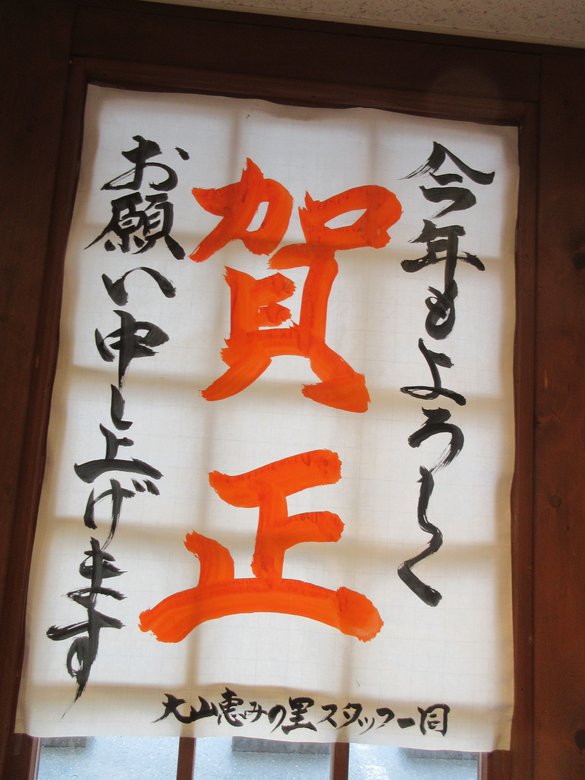 今年もよろしく
賀正
お願い申し上げます
大山恵みの里スタッフ一同